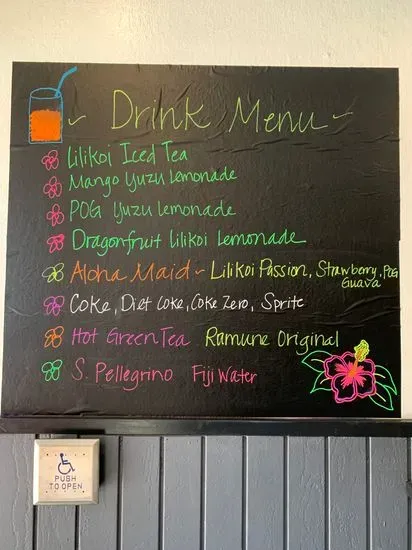 Drink Menu
Lilikoi Iced Tea
Mango Yuzu Lemonade
POG Yuzu Lemonade
Dragonfruit Lilikoi Lemonade
Aloha Maid ~ Lilikoi Passion, Strawberry, POG
Guava
Coke, Diet Coke, Coke Zero, Sprite
Hot Green Tea Ramune Original
S. Pellegrino Fiji Water
PUSH
TO OPEN